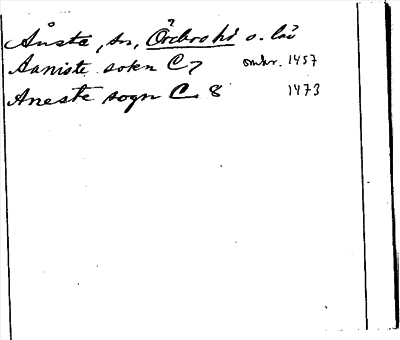 Ånsta, sn, Örebro hd o. län
Aaniste soken C 7 omkr. 1457
Aneste sogn C 8 1473